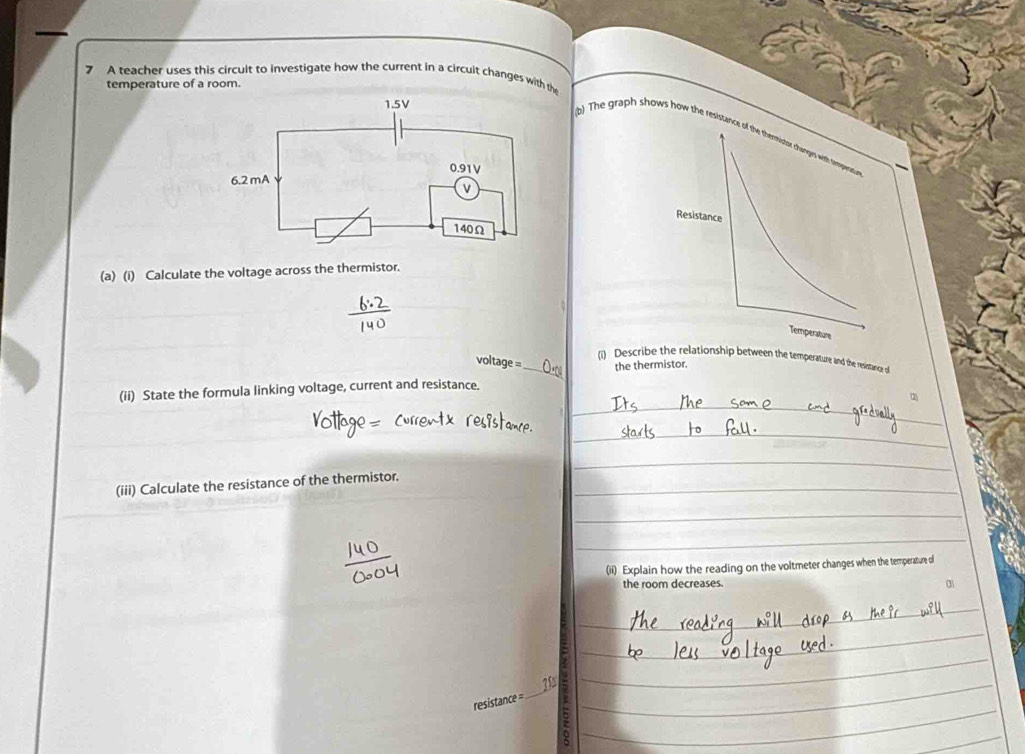 7 A teacher uses this circuit to investigate how the current in a circuit changes with the
temperature of a room.
1.5V
6.2 mA
0.91V
V
140 Ω
(a) (i) Calculate the voltage across the thermistor.
6.2
140
voltage =
(ii) State the formula linking voltage, current and resistance.
Voltage = current x resistance.
(iii) Calculate the resistance of the thermistor.
140
0.04
resistance =
(b) The graph shows how the resistance of the thermistor changes with temperature.
Resistance
Temperature
(i) Describe the relationship between the temperature and the resistance of
the thermistor.
(2)
Its the same and gradually
starts to fall.
(ii) Explain how the reading on the voltmeter changes when the temperature of
the room decreases.
(3)
the reading will drop as their will
be less voltage used.
DO NOT WRITE IN THIS AREA